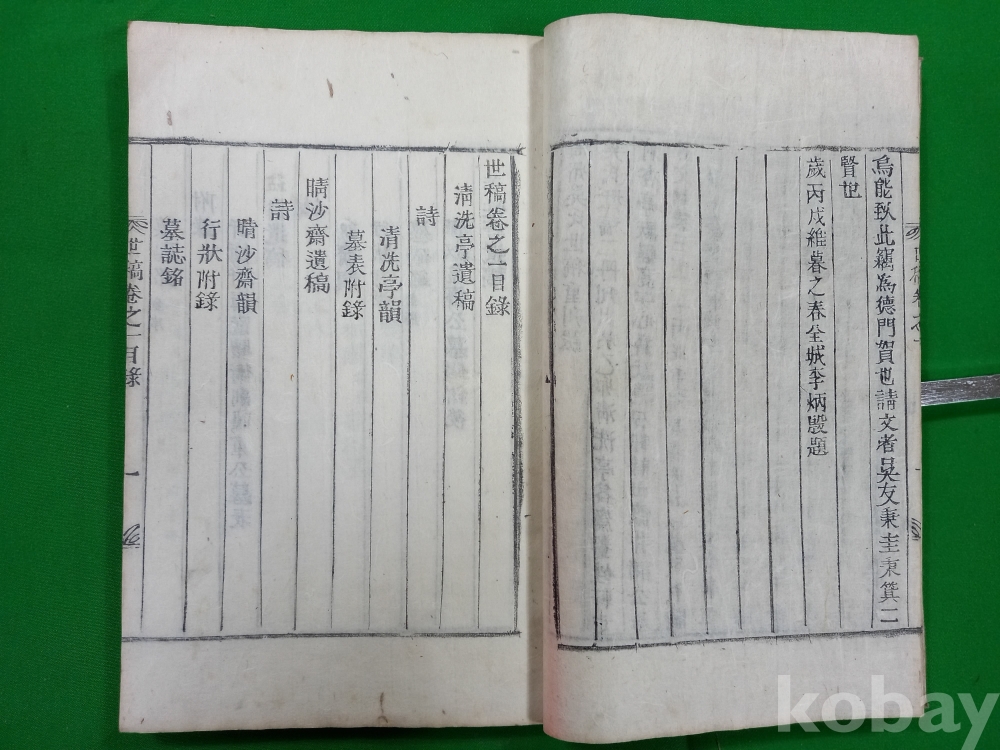 烏能致此竊為德門賀也請文者吳友秉圭秉箕二
賢也
歲丙戌維暮之春全城李炳殷題
世稿卷之一目錄
清洗亭遺稿
詩
清洗亭韻
墓表附錄
晴沙齋遺稿
詩
晴沙齋韻
行狀附錄
墓誌銘
世稿卷之一目錄
一
kobay